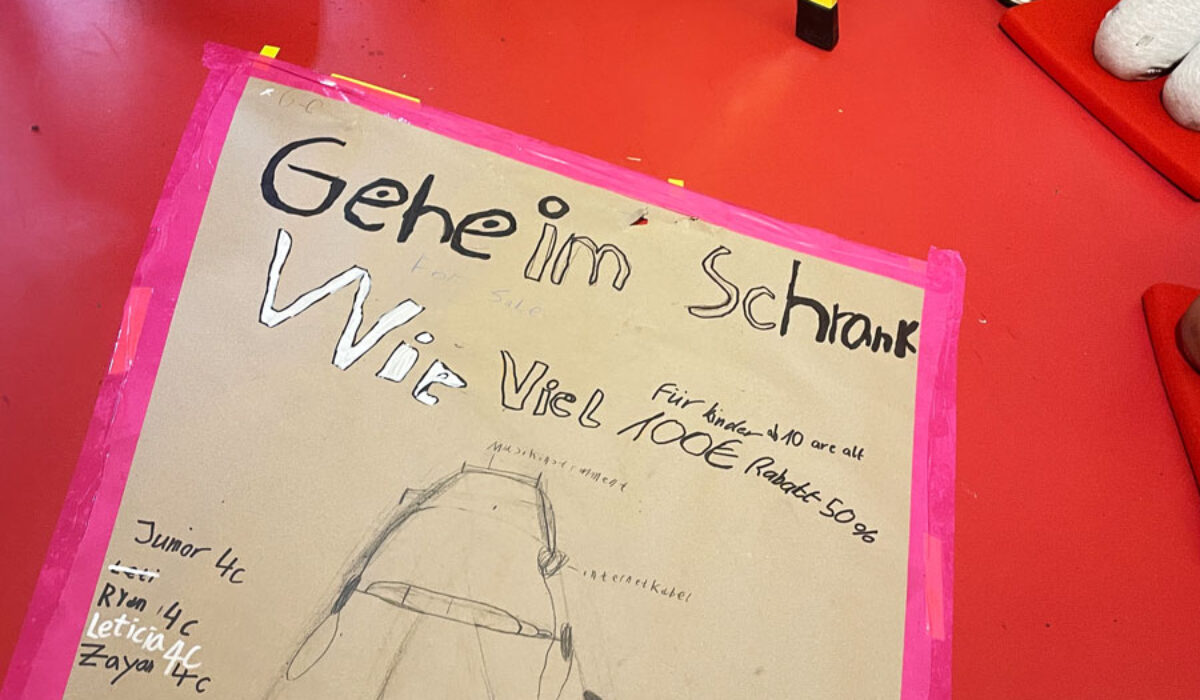 G-C
Geheim Schrank
For Sale
Wie Viel
Für kinder ab 10 are alt
100€ Rabatt 50%
Musikinstrument
internetkabel
Junior 4c
Leti
Ryan, 4c
Leticia 4C
Zayan 4c